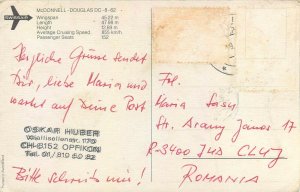 SWISSAIR
McDONNELL - DOUGLAS DC-8-62
Wingspan 45.22 m
Length 47.98 m
Height 12.93 m
Average Cruising Speed 855 km/h
Passenger Seats 152
Herzliche Grüsse sendet
Dir, liebe Maria und
wartet auf Deine Post
OSKAR HUBER
Wallisellenstr. 170
CH-8152 OPFIKON
Tel. 01/810 60 82
Bitte schreib mir!
Maria
Str. Arany Janos 17
R-3400 JUD CLUJ
ROMANIA